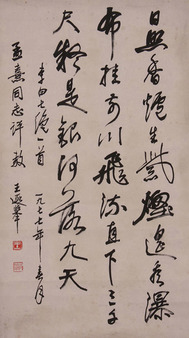 日照香炉生紫烟遥看瀑
布挂前川飞流直下三千
尺疑是银河落九天
李白七绝一首 一九七七年春月
孟熹同志详教 王遐举